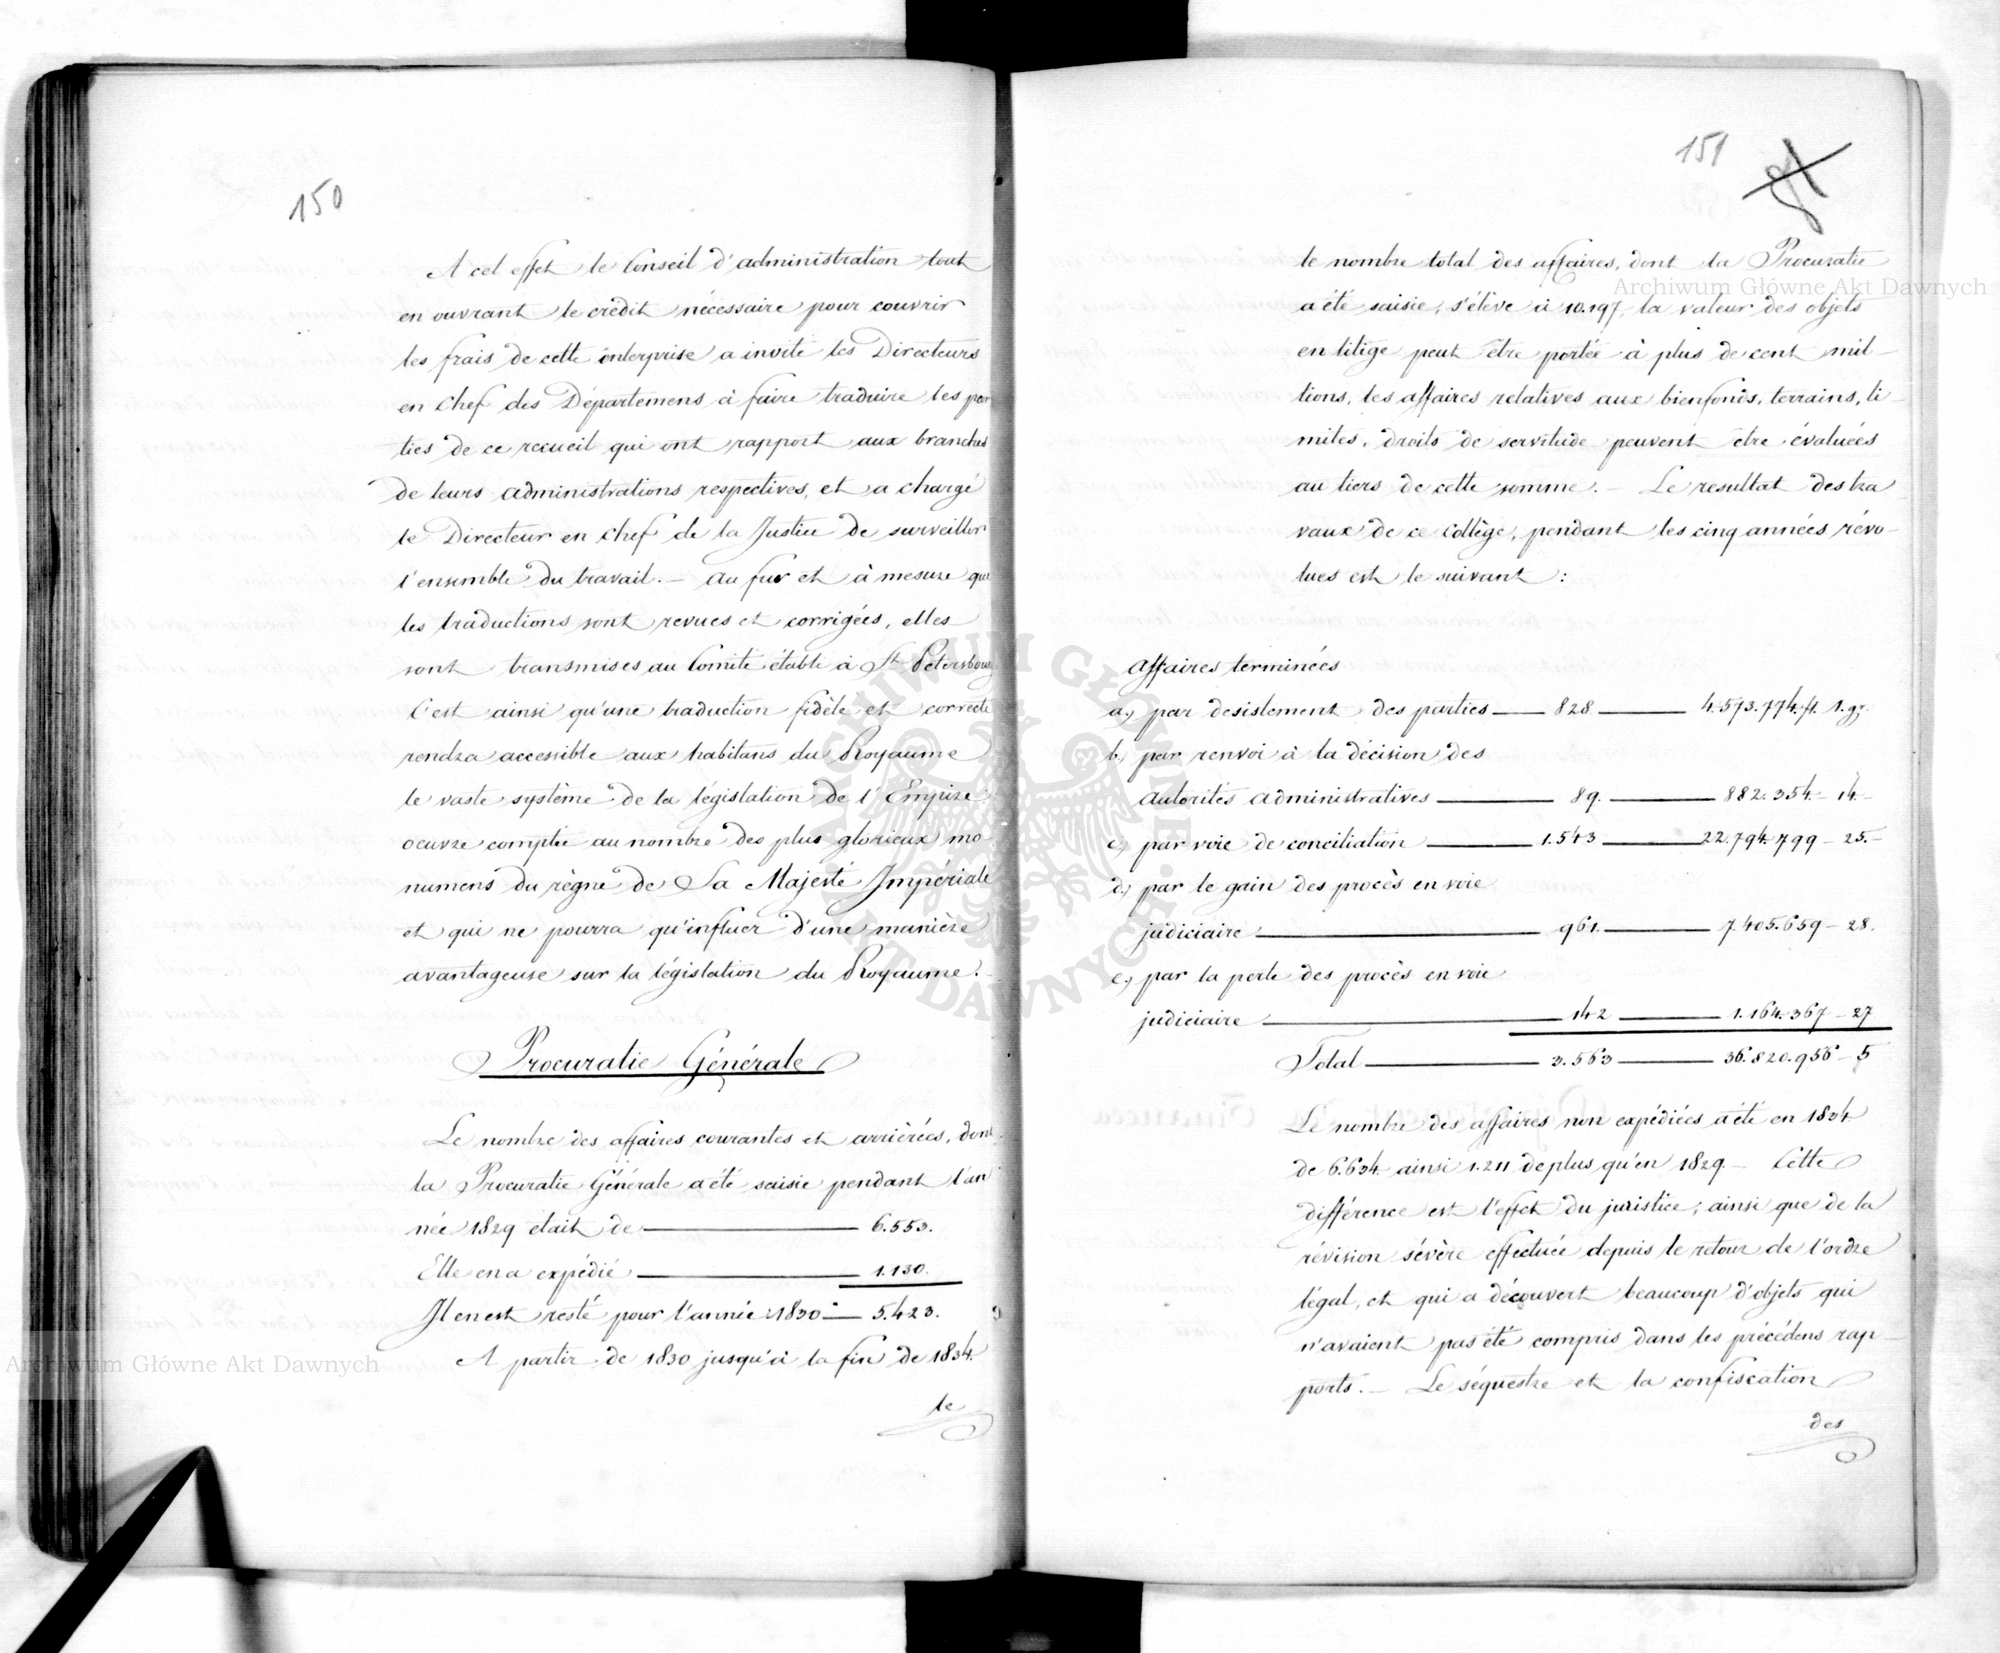 150
A cet effet le Conseil d'administration tout
en ouvrant le crédit nécessaire pour couvrir
les frais de cette enterprise a invité les Directeurs
en Chef des Départemens à faire traduire les par
ties de ce recueil qui ont rapport aux branches
de leurs administrations respectives, et a chargé
le Directeur en Chef de la Justice de surveiller
l'ensemble du travail. — au fur et à mesure que
les traductions sont revues et corrigées, elles
sont transmises au Comité établi à St. Petersbourg
C'est ainsi qu'une traduction fidèle et correcte
rendra accessible aux habitans du Royaume
le vaste système de la législation de l'Empire
oeuvre comptée au nombre des plus glorieux mo
numens du règne de Sa Majesté Impériale
et qui ne pourra qu'influer d'une manière
avantageuse sur la législation du Royaume.
Procuratie Générale
Le nombre des affaires courantes et arriérées, dont
la Procuratie Générale a été saisie pendant l'an
née 1829 était de — 6.553.
Elle en a expédié — 1.130.
Il en est resté pour l'année 1830 — 5.423.
A partir de 1830 jusqu'à la fin de 1834
le
151
le nombre total des affaires, dont la Procuratie
a été saisie, s'élève à 10.197, la valeur des objets
en litige peut être portée à plus de cent mil-
lions, les affaires relatives aux bienfonds, terrains, li-
mites, droits de servitude peuvent être évaluées
au tiers de cette somme. — Le resultat des tra
vaux de ce Collège, pendant les cinq années révo-
lues est le suivant :
Affaires terminées
a.) par desistement des parties — 828 — 4.573.774 fl. 1. gr.
b.) par renvoi à la décision des
autorités administratives — 89. — 882.354 — 14. —
c.) par voie de conciliation — 1.543 — 22.794.799 — 25. —
d.) par le gain des procès en voie
judiciaire — 961. — 7.405.659 — 28.
e.) par la perte des procès en voie
judiciaire — 142 — 1.164.367 — 27
Total — 3.563 — 36.820.956 — 5
Le nombre des affaires non expédiées a été en 1834
de 6.634 ainsi 1.211 de plus qu'en 1829. — Cette
différence est l'effet du juristice, ainsi que de la
révision sévère effectuée depuis le retour de l'ordre
légal, et qui a découvert beaucoup d'objets qui
n'avaient pas été compris dans les précédens rap-
ports. — Le séquestre et la confiscation
des
Archiwum Główne Akt Dawnych
Archiwum Główne Akt Dawnych
ARCHIWUM GŁÓWNE AKT DAWNYCH